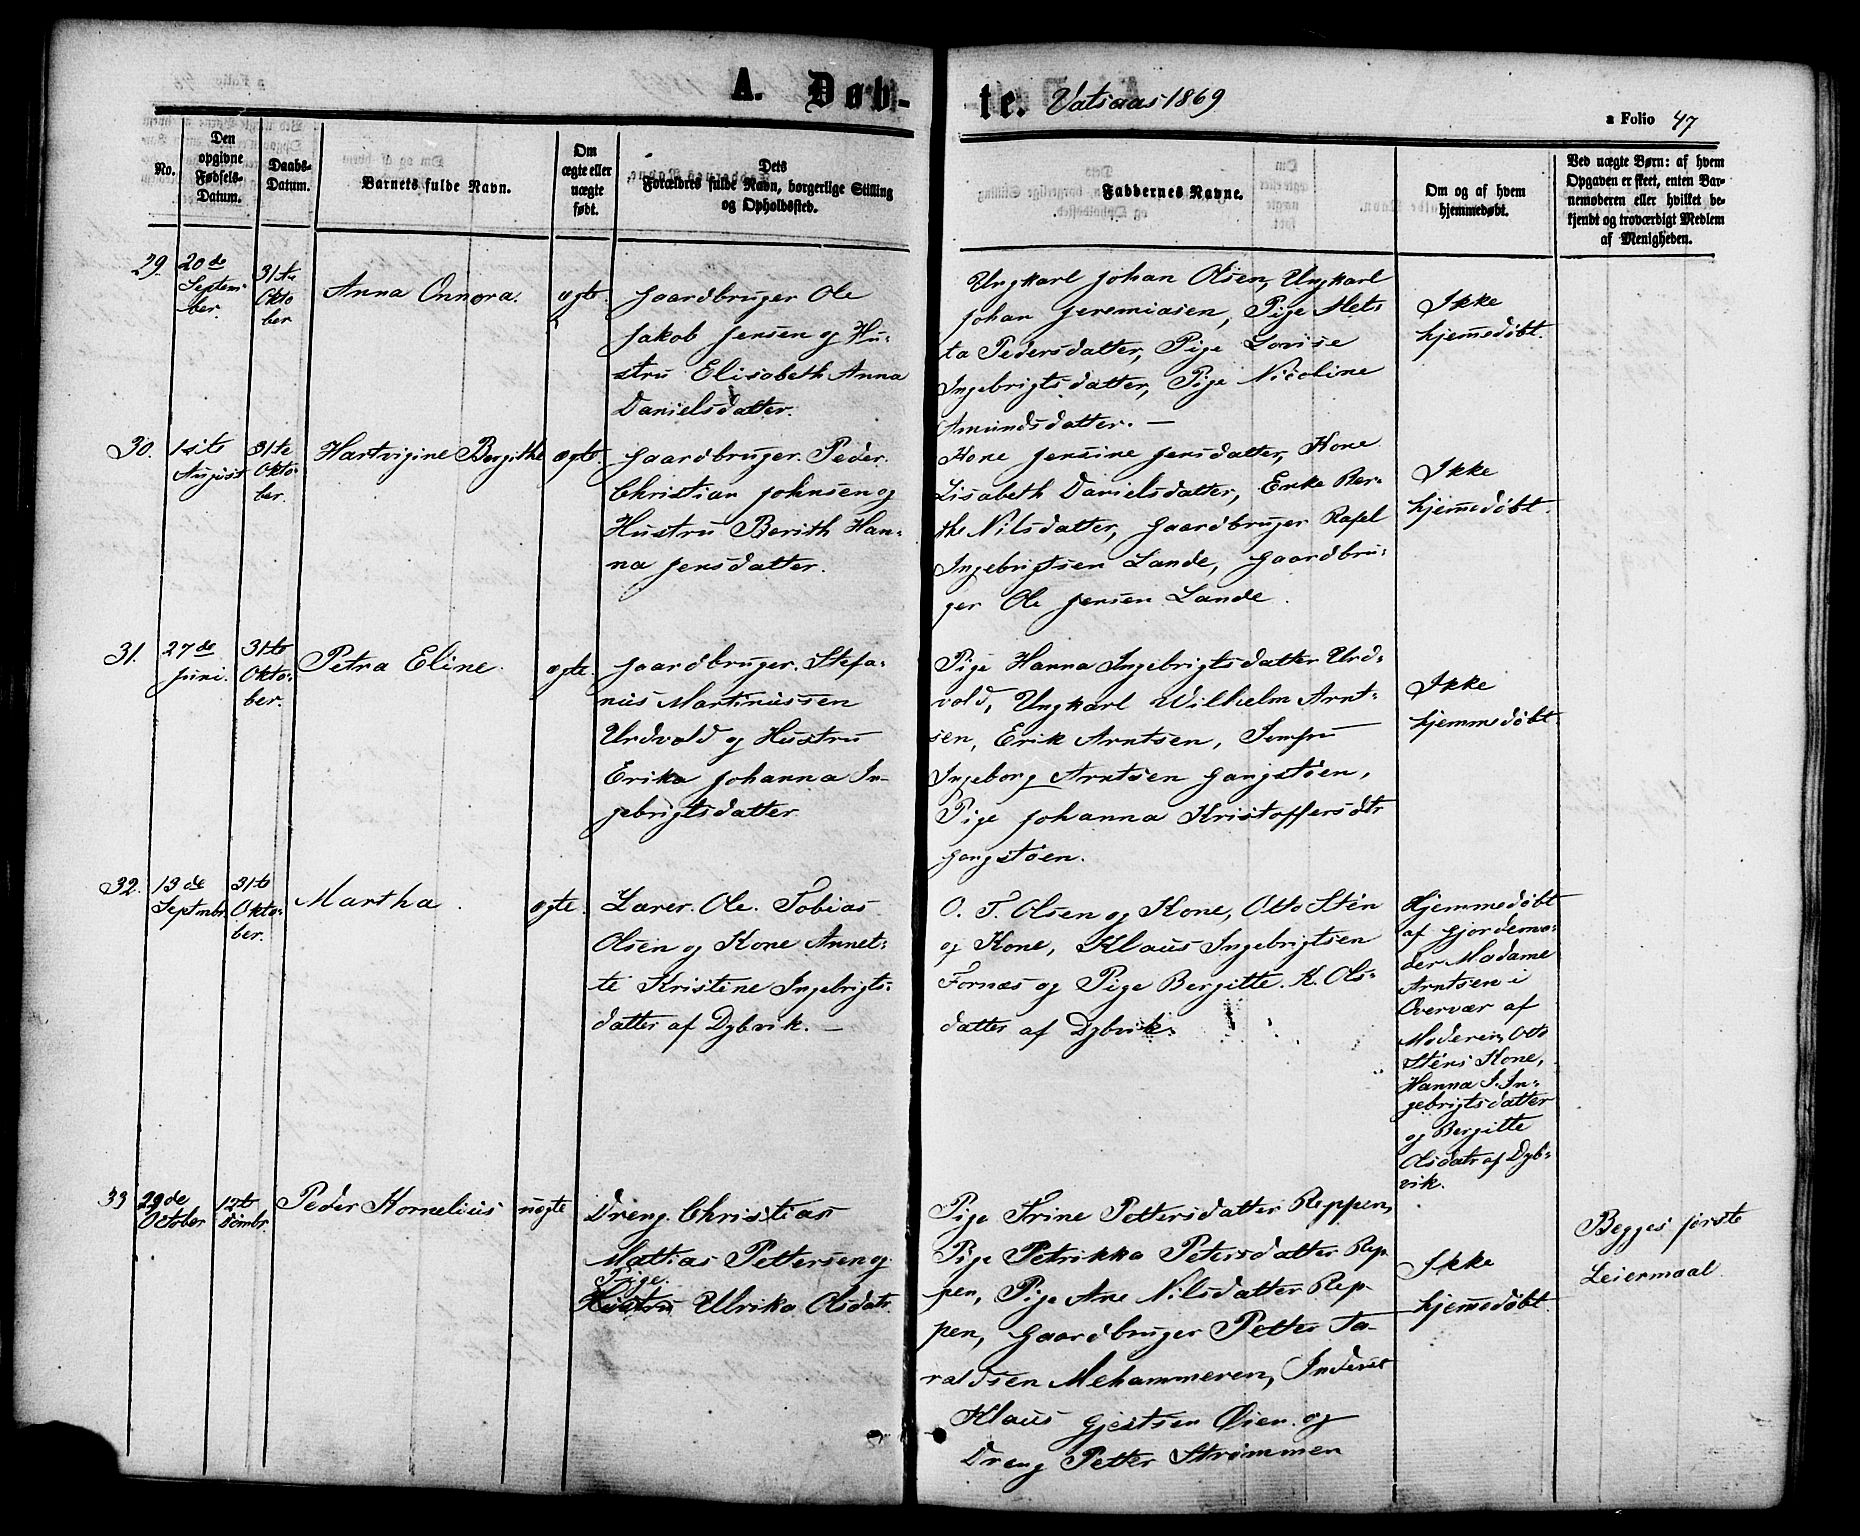 A. Døb-
te. Vatsaas 1869
a Folio 47
No.
Den
opgivne
Fødsels-
Datum.
Daabs-
Datum.
Barnets fulde Navn.
Om
ægte eller
uægte
født.
Dets
Forældres fulde Navn, borgerlige Stilling
og Opholdssted.
Faddernes Navne.
Om og af hvem
hjemmedøbt.
Ved uægte Børn: af hvem
Opgaven er skeet, enten Bar-
nemoderen eller hvilket be-
kjendt og troværdigt Medlem
af Menigheden.
29.
20de
Septem-
ber.
31te
Okto
ber
Anna Onnora.
ægte.
Gaardbruger Ole
Jakob Jensen og Hu-
stru Elisabeth Anna
Danielsdatter.
Ungkarl Johan Olsen, Ungkarl
Johan Jeremiasen, Pige Met-
ta Pedersdatter, Pige Lovise
Ingebrigtsdatter, Pige Nicoline
Amundsdatter. —
Ikke
hjemedøbt.
30.
1ste
August
31te
Okto-
ber.
Hartvigine Bergithe
ægte.
Gaardbruger. Peder.
Christian Johnsen og
Hustru Berith Han-
na Jensdatter.
Kone Jensine Jensdatter, Kone
Lisabeth Danielsdatter, Enke Ber-
the Nilsdatter, Gaardbruger Rafel
Ingebrigtsen Lande, Gaardbru-
ger Ole Jensen Lande.
Ikke
hjemedøbt.
31.
27de
Juni.
31te
Okto-
ber.
Petra Eline.
ægte.
Gaardbruger. Stefa-
nus Martinussen
Urdvold og Hustru
Erika Johanna In-
gebrigtsdatter
Pige Hanna Ingebrigtsdatter Urd-
vold, Ungkarl Wilhelm Arnt-
sen, Erik Arntsen, Jomfru
Ingeborg Arntsen Gangstøen,
Pige Johanna Kristoffersdtr
Gangstøen.
Ikke
hjemmedøbt.
32.
13de
Septmbr
31te
Okto-
ber.
Martha.
ægte.
Lærer. Ole. Tobias
Olsen og Kone Annet-
te Kristine Ingebrigts-
datter af Dybvik. —
O. T. Olsen og Kone, Otto Stén
og Kone, Klaus Ingebrigtsen
Fornæs og Pige Bergitte. K. Ols-
datter af Dybvik.
Hjemmedøbt
af Gjordemo-
der Madame
Arntsen i
Overvær af
Moderen, Otto
Sténs Kone,
Hanna I. In-
gebrigtsdatter
og Bergitte
Olsdatr af Dyb-
vik.
33
29de
October
12te
Dcmbr.
Peder Kornelius
uægte
Dreng. Christian
Mattias Pettersen og
Pige.
Hustru Ulrika Olsdatr.
Pige Trine Pettersdatter Reppen,
Pige Petrikka Petersdatter Rep
pen, Pige Ane Nilsdatter Rep
pen, Gaardbruger Petter Ta-
raldsen Mehammeren, Inderst
Klaus Gjertsen Øien og
Dreng Petter Strømmen
Ikke
hjemedøbt.
Begges første
Leiermaal